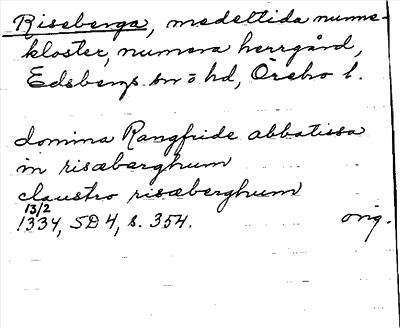 Riseberga, medeltida nunne-
kloster, numera herrgård,
Edsbergs sn o hd, Örebro l.
domina Rangfride abbatissa
in risæberghum
claustro risæberghum
13/2
1334, SD 4, s. 354. orig.